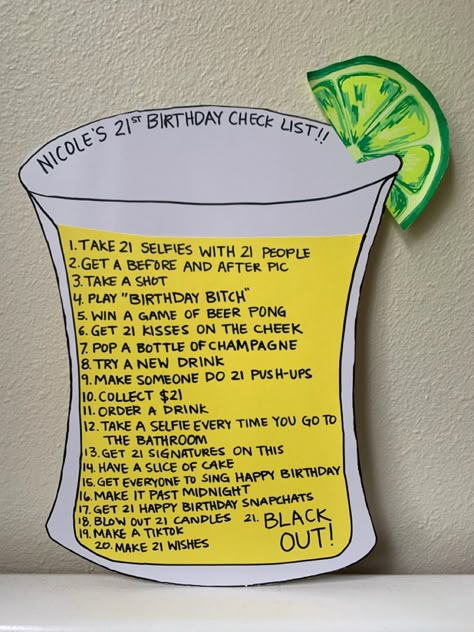 NICOLE'S 21ST BIRTHDAY CHECK LIST!!
1. TAKE 21 SELFIES WITH 21 PEOPLE
2. GET A BEFORE AND AFTER PIC
3. TAKE A SHOT
4. PLAY "BIRTHDAY BITCH"
5. WIN A GAME OF BEER PONG
6. GET 21 KISSES ON THE CHEEK
7. POP A BOTTLE OF CHAMPAGNE
8. TRY A NEW DRINK
9. MAKE SOMEONE DO 21 PUSH-UPS
10. COLLECT $21
11. ORDER A DRINK
12. TAKE A SELFIE EVERY TIME YOU GO TO
THE BATHROOM
13. GET 21 SIGNATURES ON THIS
14. HAVE A SLICE OF CAKE
15. GET EVERYONE TO SING HAPPY BIRTHDAY
16. MAKE IT PAST MIDNIGHT
17. GET 21 HAPPY BIRTHDAY SNAPCHATS
18. BLOW OUT 21 CANDLES
19. MAKE A TIKTOK
20. MAKE 21 WISHES
21. BLACK
OUT!